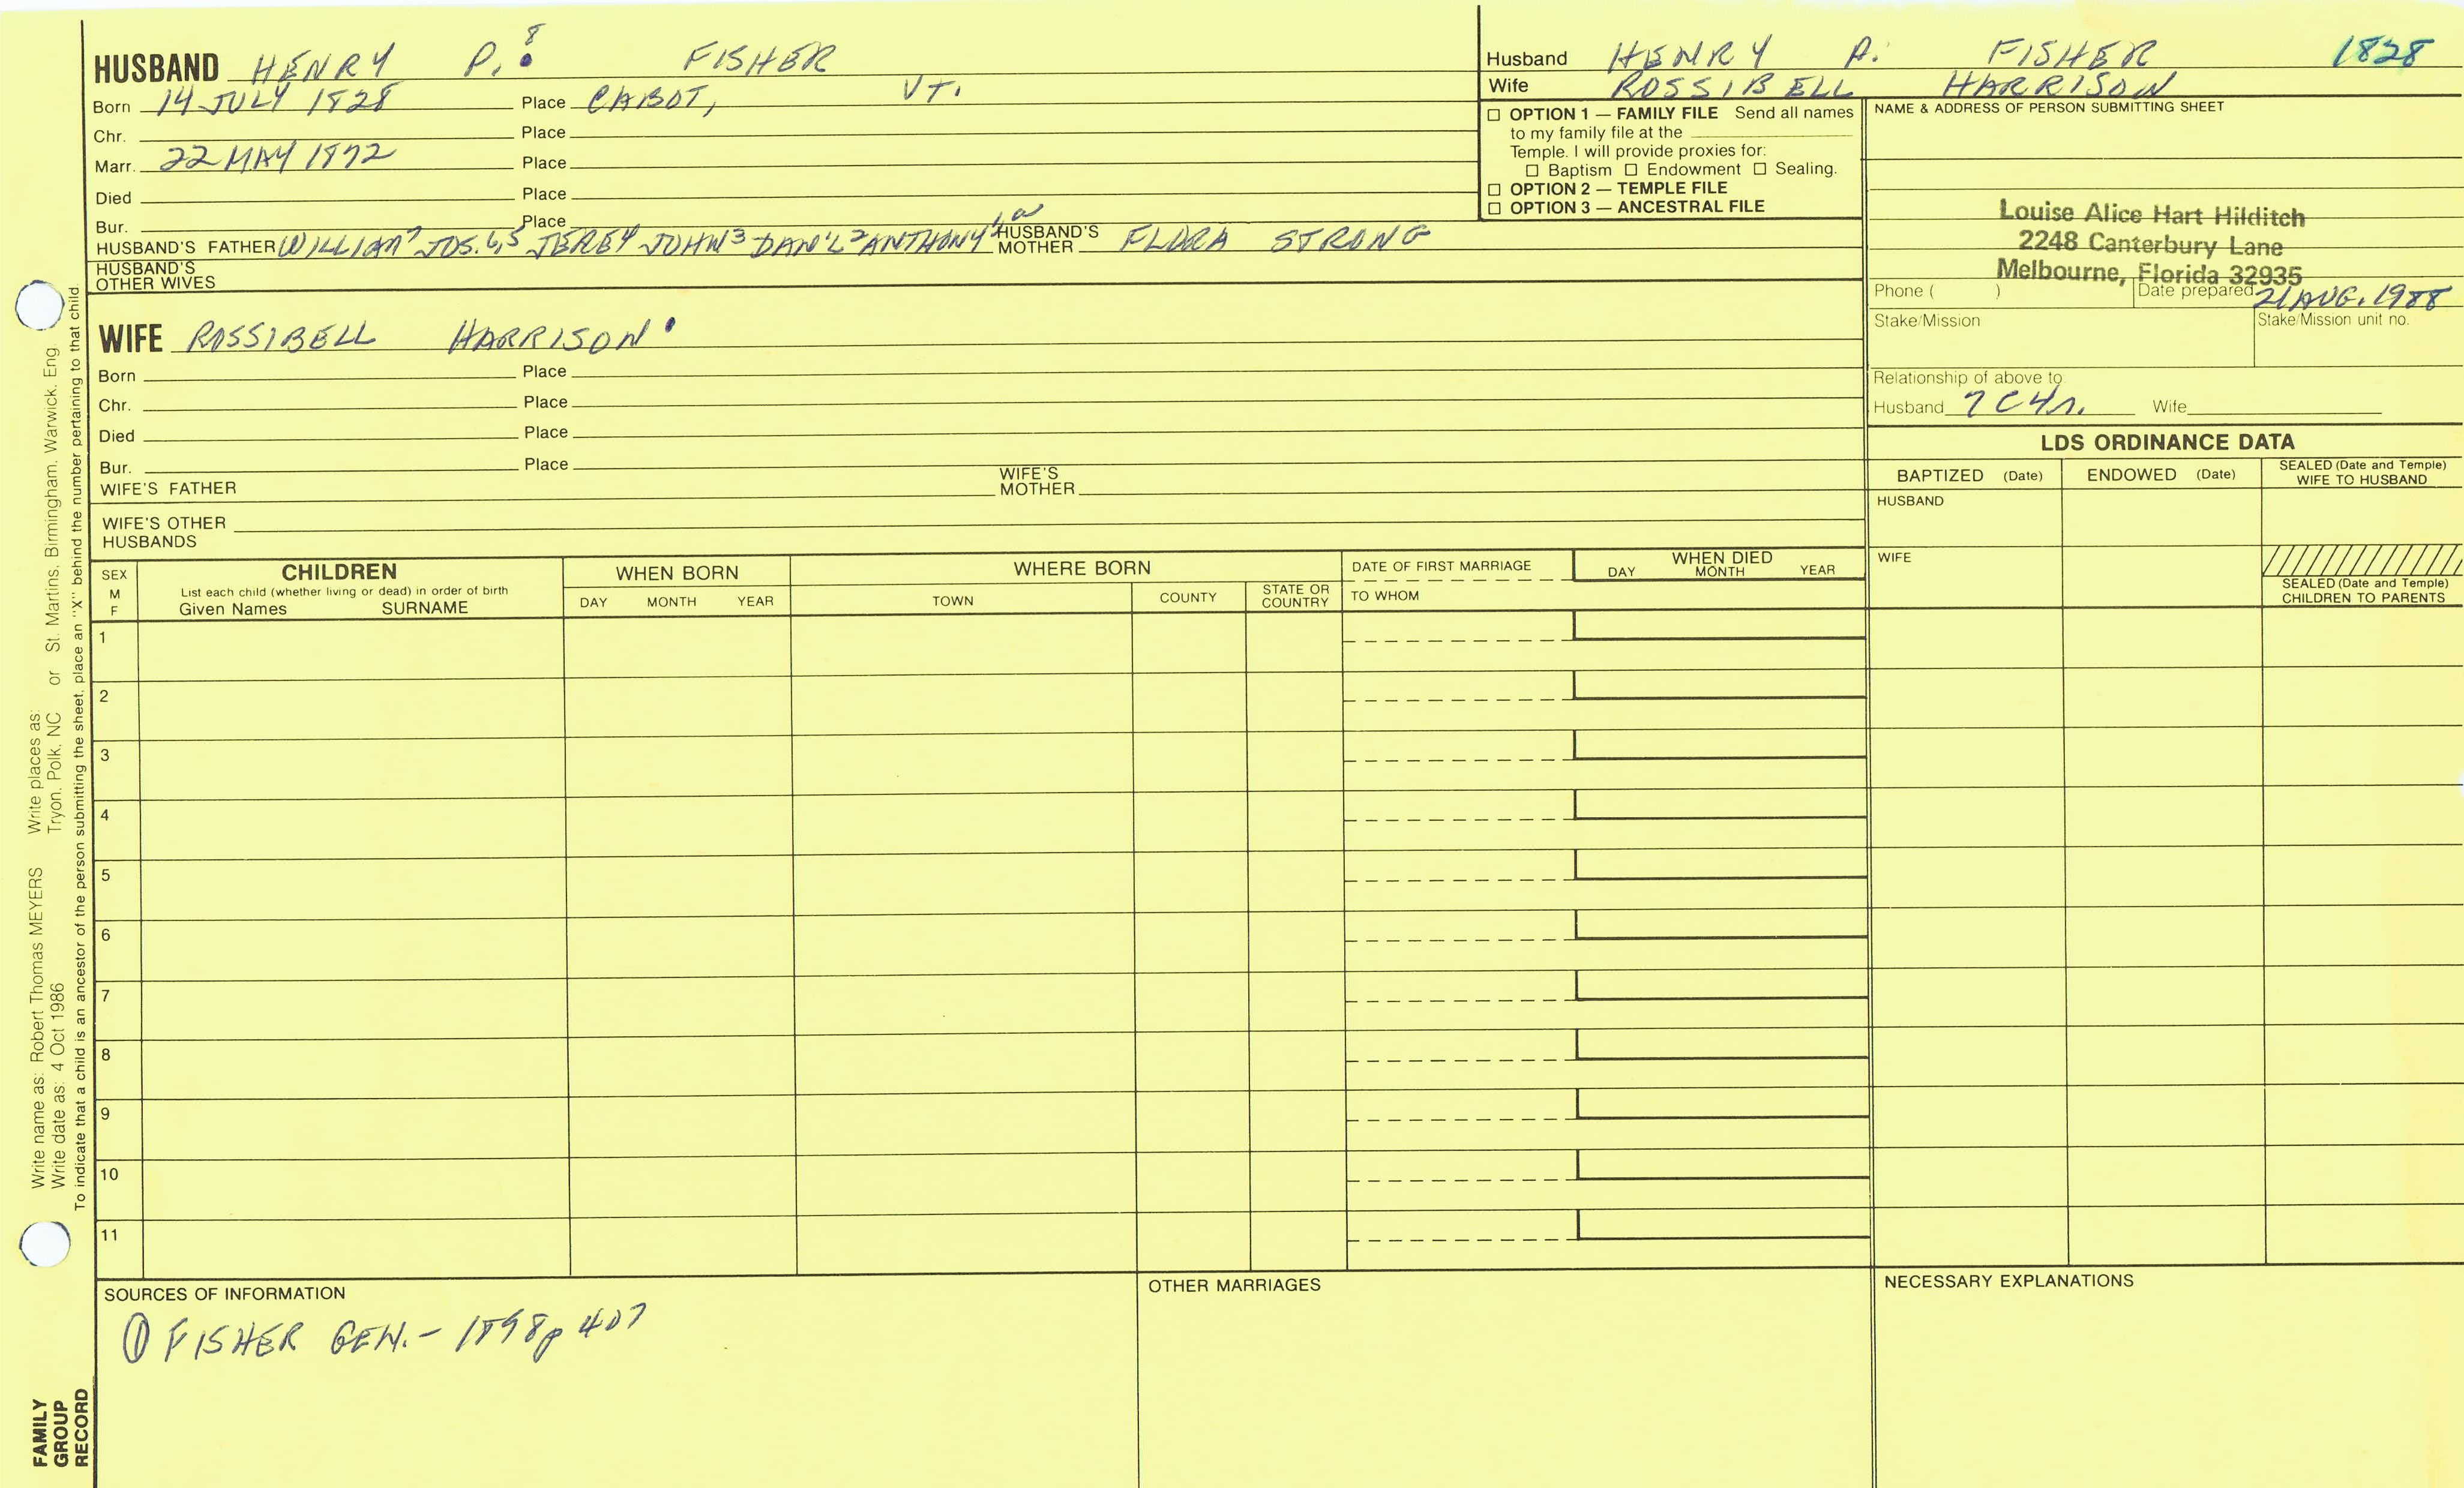 HUSBAND HENRY P.⁸ FISHER
Born 14 JULY 1828 Place CABOT, VT.
Chr. Place
Marr. 22 MAY 1872 Place
Died Place
Bur. Place
HUSBAND'S FATHER WILLIAM⁷ JOS.6,5 JEREY JOHN³ DAN'L² ANTHONY¹ HUSBAND'S MOTHER FLORA STRONG
HUSBAND'S OTHER WIVES
Husband HENRY P. FISHER 1828
Wife ROSSIBELL HARRISON
☐ OPTION 1 — FAMILY FILE Send all names
to my family file at the
Temple. I will provide proxies for:
☐ Baptism ☐ Endowment ☐ Sealing.
☐ OPTION 2 — TEMPLE FILE
☐ OPTION 3 — ANCESTRAL FILE
NAME & ADDRESS OF PERSON SUBMITTING SHEET
Louise Alice Hart Hilditch
2248 Canterbury Lane
Melbourne, Florida 32935
Phone ( ) Date prepared 21 AUG. 1988
Stake/Mission Stake/Mission unit no.
Relationship of above to
Husband 7C4r. Wife
WIFE ROSSIBELL HARRISON
Born Place
Chr. Place
Died Place
Bur. Place
WIFE'S FATHER WIFE'S MOTHER
WIFE'S OTHER HUSBANDS
LDS ORDINANCE DATA
BAPTIZED (Date) ENDOWED (Date) SEALED (Date and Temple) WIFE TO HUSBAND
HUSBAND
WIFE
SEALED (Date and Temple) CHILDREN TO PARENTS
SEX M F
CHILDREN
List each child (whether living or dead) in order of birth
Given Names SURNAME
WHEN BORN
DAY MONTH YEAR
WHERE BORN
TOWN COUNTY STATE OR COUNTRY
DATE OF FIRST MARRIAGE
TO WHOM
WHEN DIED
DAY MONTH YEAR
1
2
3
4
5
6
7
8
9
10
11
SOURCES OF INFORMATION
① FISHER GEN. - 1898 p 407
OTHER MARRIAGES
NECESSARY EXPLANATIONS
Write name as: Robert Thomas MEYERS Write places as:
Write date as: 4 Oct 1986 Tryon, Polk, NC or St. Martins, Birmingham, Warwick, Eng
To indicate that a child is an ancestor of the person submitting the sheet, place an "X" behind the number pertaining to that child.
FAMILY
GROUP
RECORD